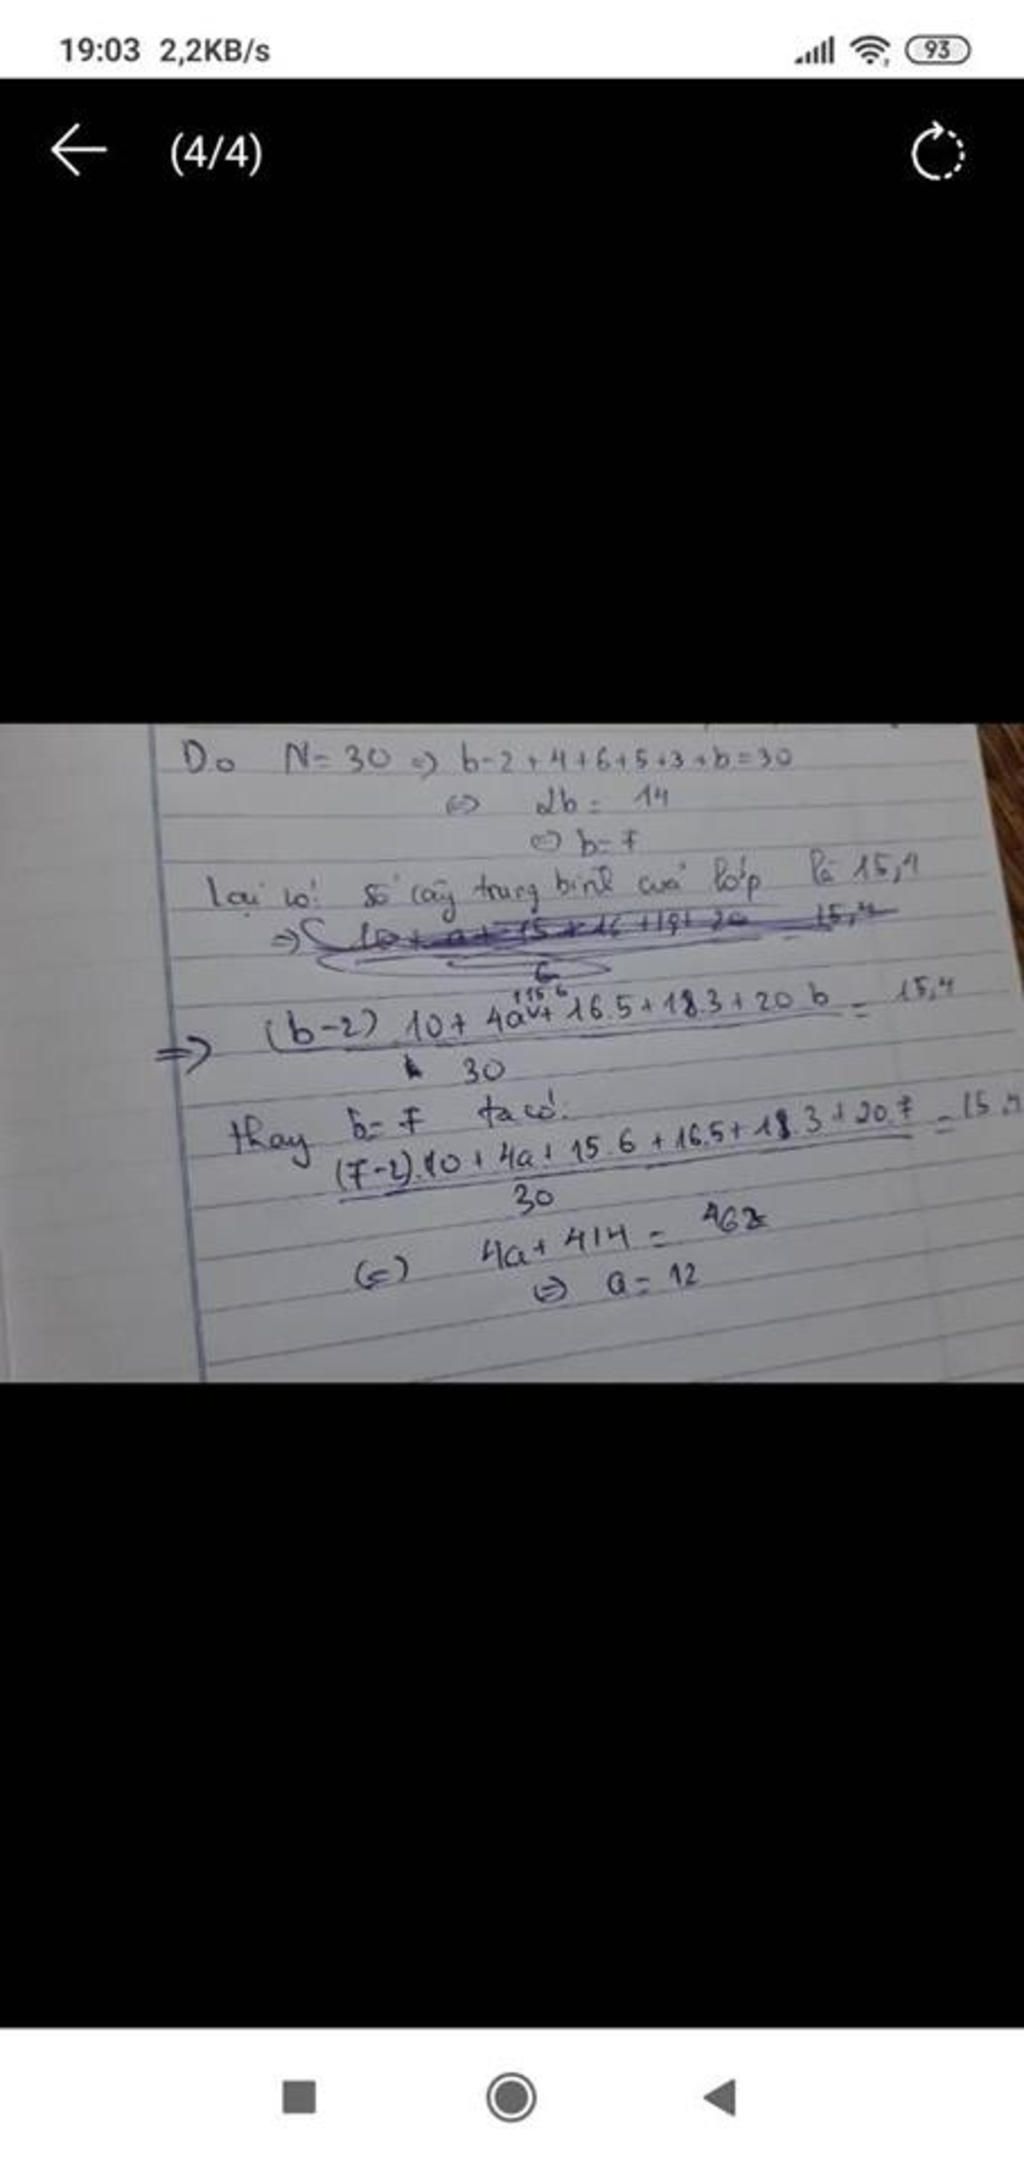 19:03 2,2KB/s
93
(4/4)
Do N = 30 => b-2+4+6+5+3+b=30
<=> 2b = 14
<=> b = 7
Lại có: số cây trung bình của lớp là 15,4
=> 10 + a + 15 + 16 + 18 + 20 = 15,4
6
+15.6
=> (b-2) 10 + 4a + 16.5 + 18.3 + 20 b = 15,4
30
thay b = 7 ta có:
(7-2).10 + 4a + 15.6 + 16.5 + 18.3 + 20.7 = 15,4
30
(=) 4a + 414 = 462
<=> a = 12